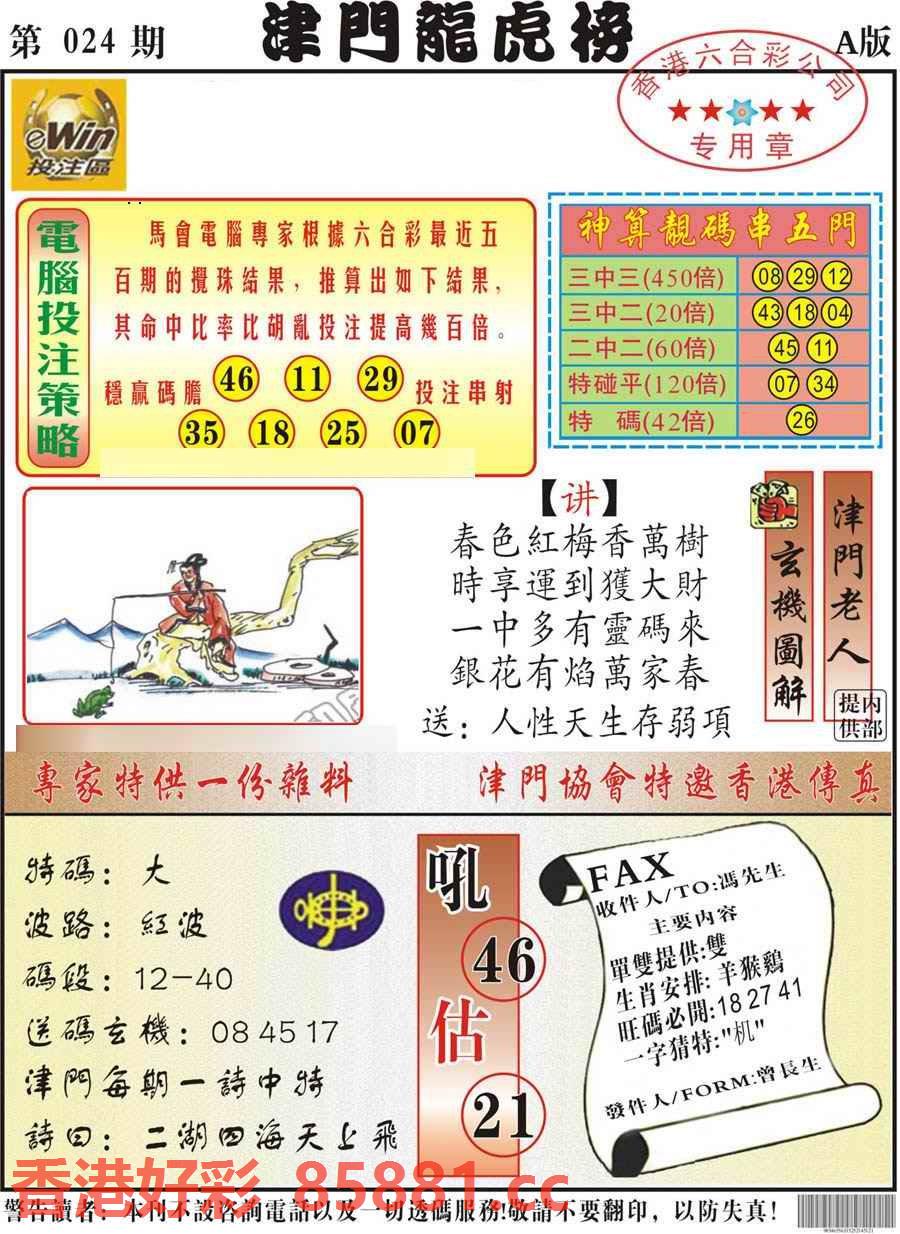 第 024 期
津門龍虎榜
A版
香港六合彩公司
专用章
eWin
投注區
電腦投注策略
馬會電腦專家根據六合彩最近五
百期的攪珠結果，推算出如下結果，
其命中比率比胡亂投注提高幾百倍。
穩贏碼膽 46 11 29 投注串射
35 18 25 07
神算靚碼串五門
三中三(450倍) 08 29 12
三中二(20倍) 43 18 04
二中二(60倍) 45 11
特碰平(120倍) 07 34
特 碼(42倍) 26
【讲】
春色紅梅香萬樹
時享運到獲大財
一中多有靈碼來
銀花有焰萬家春
送：人性天生存弱項
玄機圖解
津門老人
内部提供
專家特供一份雜料
津門協會特邀香港傳真
特碼：大
波路：紅波
碼段：12-40
送碼玄機：08 45 17
津門每期一詩中特
詩曰：二湖四海天上飛
吼
46
估
21
FAX
收件人/TO:馮先生
主要内容
單雙提供:雙
生肖安排:羊猴鷄
旺碼必開:18 27 41
一字猜特:"机"
發件人/FORM:曾長生
香港好彩 85881.cc
警告讀者：本刊不設咨詢電話以及一切透碼服務!敬請不要翻印，以防失真!